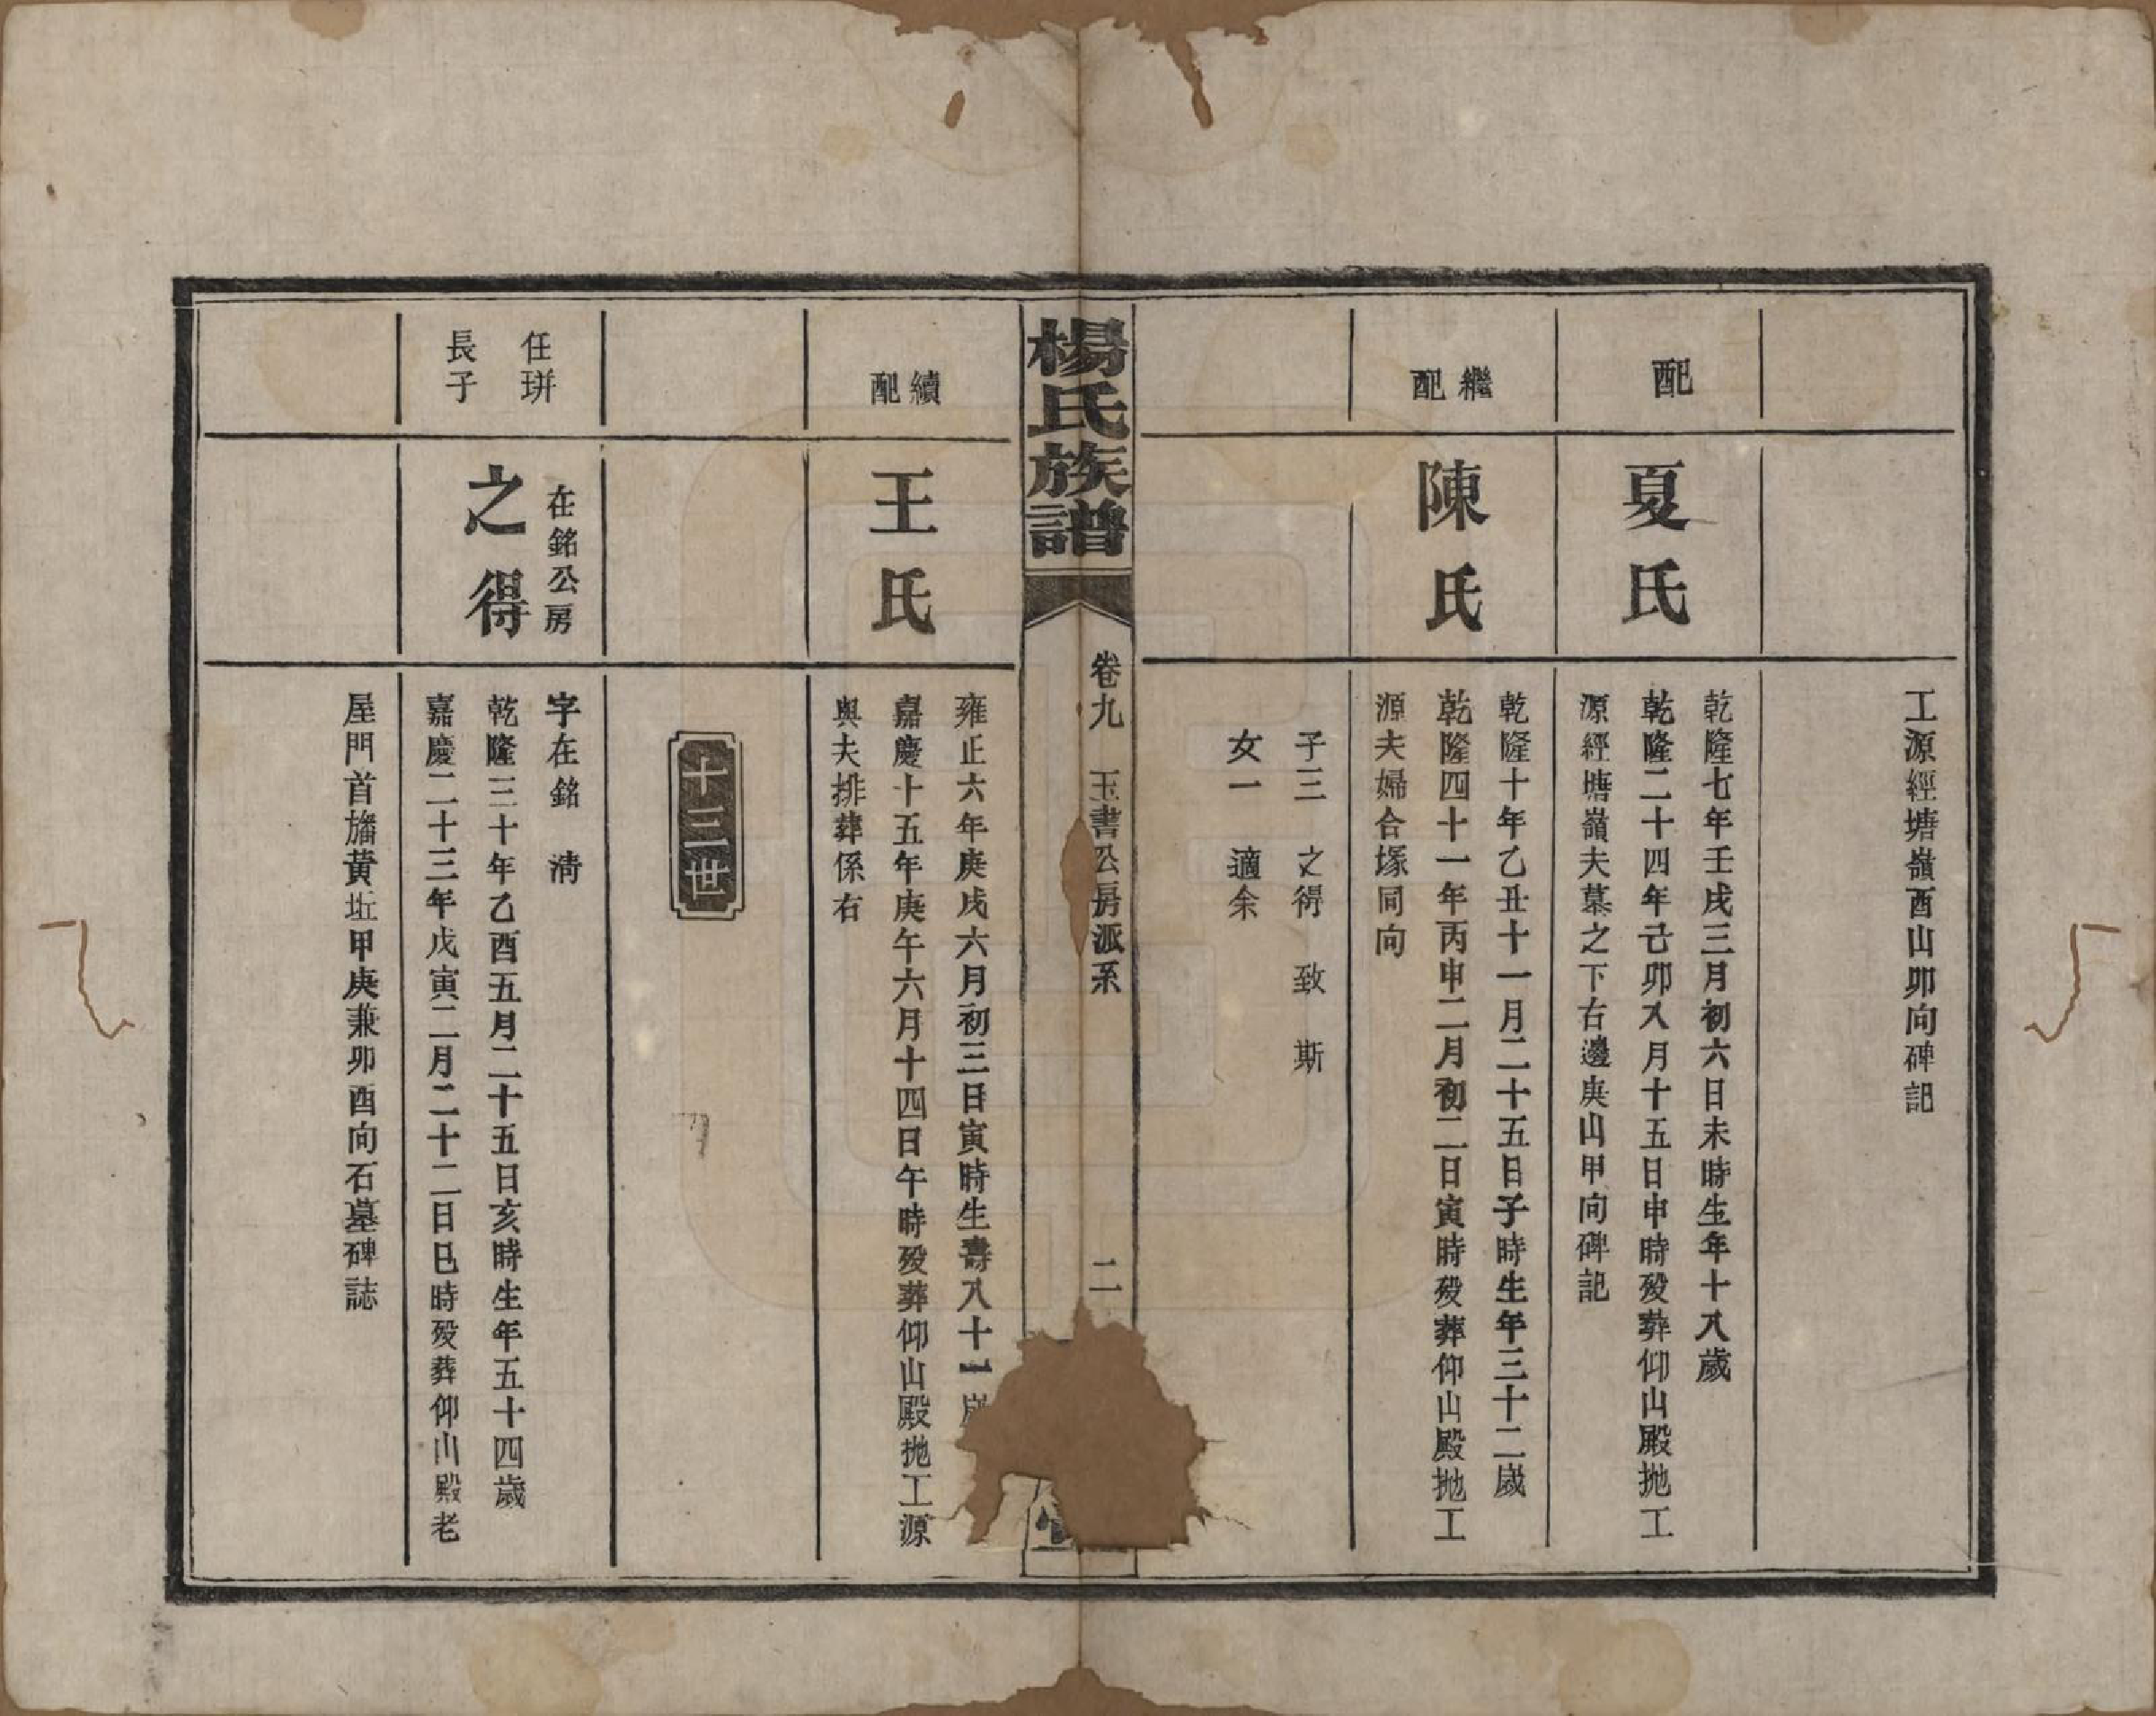 工源經塘嶺酉山卯向碑記
配
夏氏
乾隆七年壬戌三月初六日未時生年十八歲
乾隆二十四年己卯八月十五日申時殁葬仰山殿抛工
源經塘嶺夫墓之下右邊庚山甲向碑記
繼配
陳氏
乾隆十年乙丑十一月二十五日子時生年三十二歲
乾隆四十一年丙申二月初二日寅時殁葬仰山殿抛工
源夫婦合塚同向
子三 之得 致 斯
女一 適余
楊氏族譜
卷九 玉書公房派系
二
續配
王氏
雍正六年庚戌六月初三日寅時生壽八十一歲
嘉慶十五年庚午六月十四日午時殁葬仰山殿抛工源
與夫排葬係右
十三世
任琲
長子
在銘公房
之得
字在銘 清
乾隆三十年乙酉五月二十五日亥時生年五十四歲
嘉慶二十三年戊寅二月二十二日巳時殁葬仰山殿老
屋門首旛黃坵甲庚兼卯酉向石墓碑誌